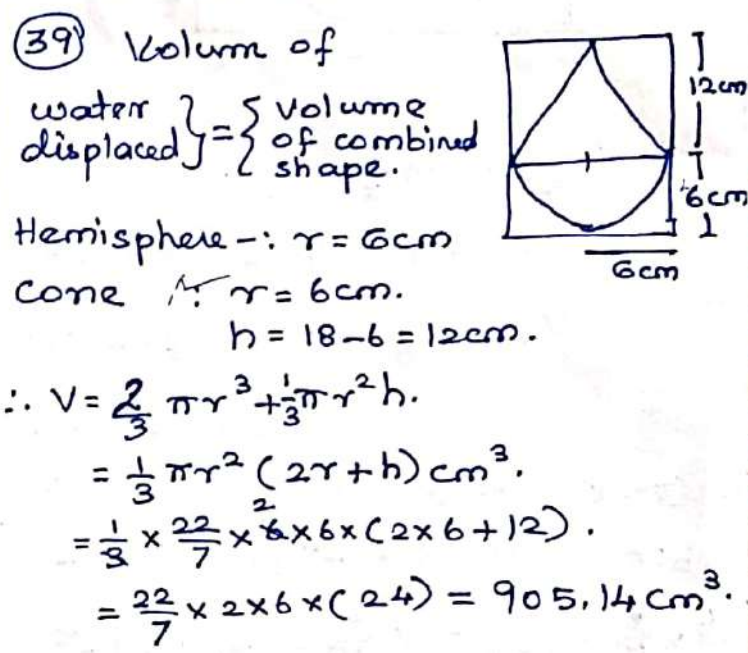 39 Volum of
water displaced } = { volume of combined shape.
12cm
6cm
6cm
Hemisphere -: r = 6cm
cone r = 6cm.
h = 18-6 = 12cm.
∴ V = 2/3 πr³ + 1/3 πr²h.
= 1/3 πr² (2r+h) cm³.
= 1/3 × 22/7 × 6 2 × 6 × (2×6+12).
= 22/7 × 2×6×(24) = 905.14 cm³.